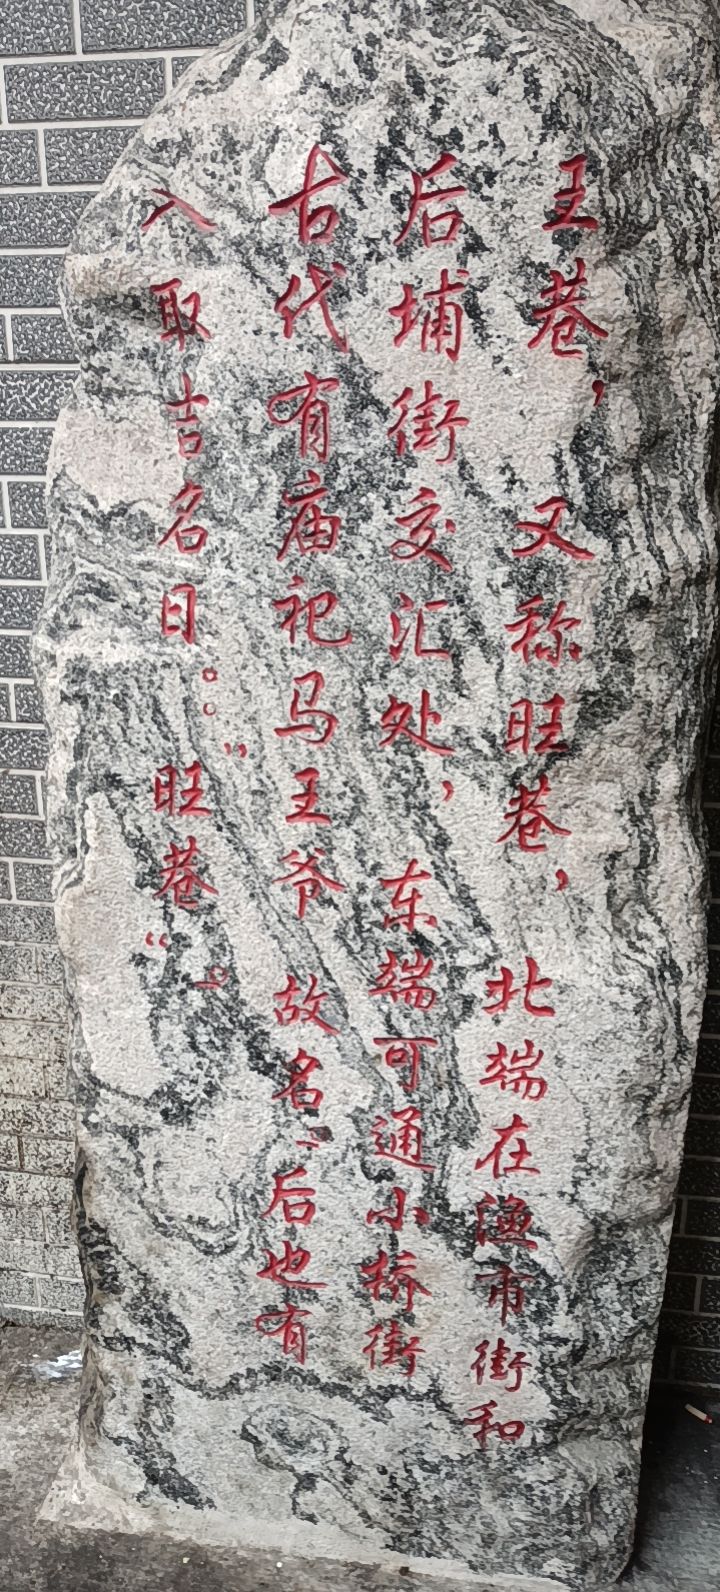 王巷，又称旺巷，北端在渔市街和
后埔街交汇处，东端可通小桥街
古代有庙祀马王爷 故名，后也有
入取吉名日：“旺巷”。